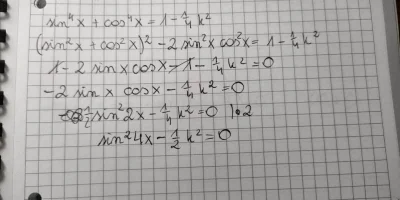 sin⁴x + cos⁴x = 1 - 1/4 k²
(sin²x + cos²x)² - 2 sin²x cos²x = 1 - 1/4 k²
1 - 2 sin x cos x - 1 - 1/4 k² = 0
-2 sin x cos x - 1/4 k² = 0
1/2 sin²2x - 1/4 k² = 0 |·2
sin²4x - 1/2 k² = 0